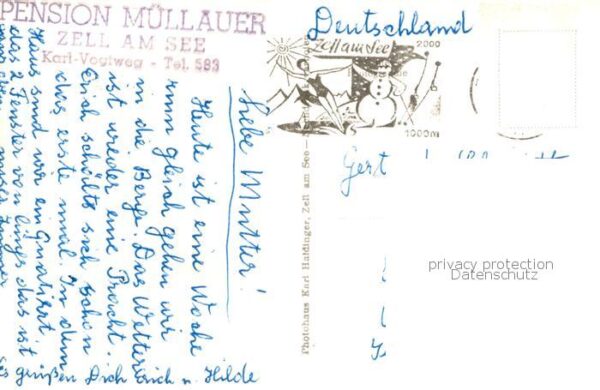 PENSION MÜLLAUER
ZELL AM SEE
Karl-Vogtweg - Tel. 583
Deutschland
Zell am See
2000
1000m
Liebe Mutter!
Heute ist eine Woche
rum gleich gehen wir
in die Berge. Das Wetter
ist wieder eine Pracht.
Erich schält sich schon
das erste mal. In dem
Haus sind wir einquatiert
das 2 Fenster von links das ist
unser Zimmer
Es grüßen Dich Erich u. Hilde
Photohaus Karl Haidinger, Zell am See
Gert
privacy protection
Datenschutz